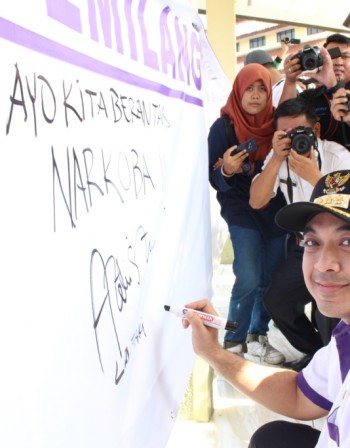 EMILANG
AYO KITA BERANTAS
NARKOBA !